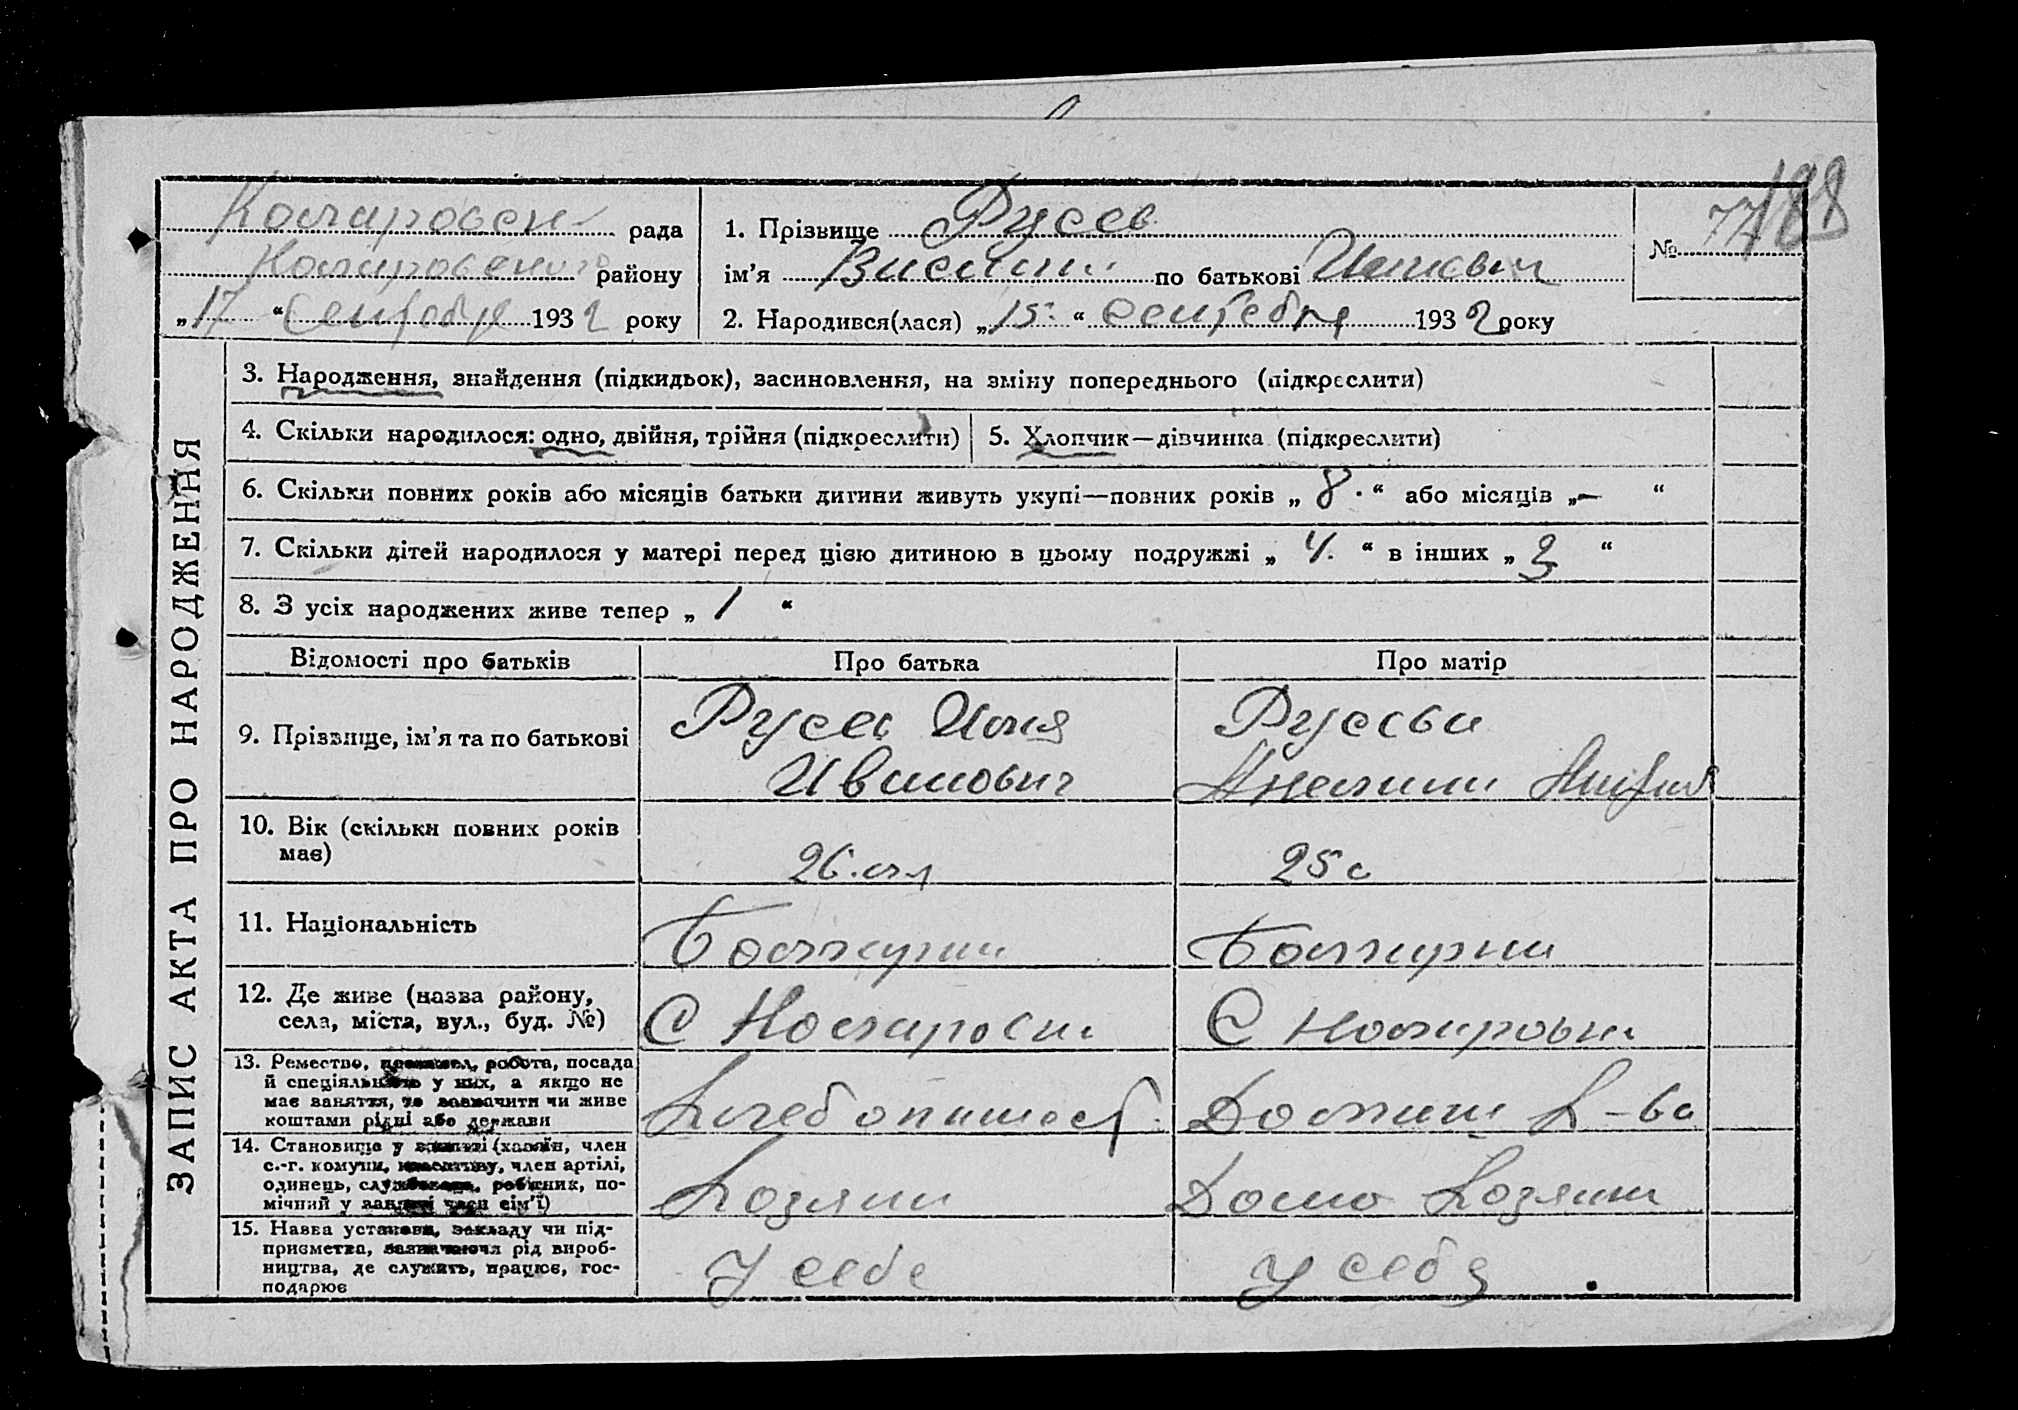 Коларовск рада
Коларовского району
„17“ Сентебре 1932 року
1. Прізвище Русев
ім'я Висилий по батькові Илиевич
2. Народився(лася) „15“ Сентебря 1932 року
№ 77/88
ЗАПИС АКТА ПРО НАРОДЖЕННЯ
3. Народження, знайдення (підкидьок), засиновлення, на зміну попереднього (підкреслити)
4. Скільки народилося: одно, двійня, трійня (підкреслити)
5. Хлопчик—дівчинка (підкреслити)
6. Скільки повних років або місяців батьки дитини живуть укупі—повних років „8.“ або місяців „—“
7. Скільки дітей народилося у матері перед цією дитиною в цьому подружжі „4.“ в інших „3“
8. З усіх народжених живе тепер „1“
Відомості про батьків Про батька Про матір
9. Прізвище, ім'я та по батькові
Русев Илия
Ивонович
Русева
10. Вік (скільки повних років
має)
26.
25
11. Національність
Болгарин
Болгарин
12. Де живе (назва району,
села, міста, вул., буд. №)
С Коларовка
С Коларовка
13. Ремество, промисел, робота, посада
й спеціяльність у них, а якщо не
має заняття, то зазначити чи живе
коштами рідні або держави
Хлебопашест
Домашн Х-во
14. Становище у занятті (хазяїн, член
с.-г. комуни, колективу, член артілі,
одинець, службовець, робітник, по-
мічний у занятті член сім'ї)
Хозяин
Домо Хозяин
15. Назва установи, закладу чи під-
приємства, зазначаючи рід вироб-
ництва, де служить, працює, гос-
подарює
У себе
У себя